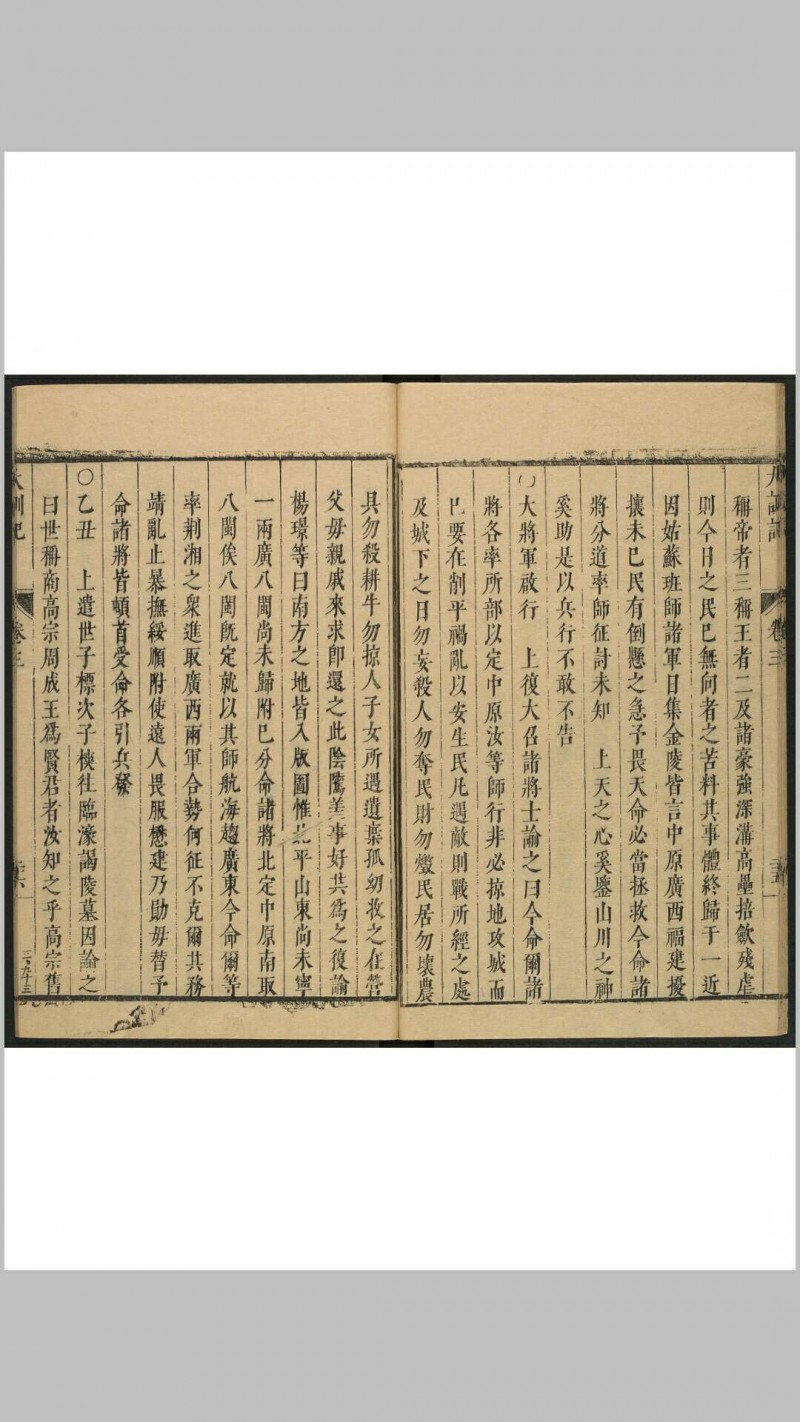 大訓記
卷三
三五
稱帝者三稱王者二及諸豪強深溝高壘掊歛殘虐
則今日之民已無向者之苦料其事體終歸于一近
因姑蘇班師諸軍日集金陵皆言中原廣西福建擾
攘未已民有倒懸之急予畏天命必當拯救今命諸
將分道率師征討未知　上天之心奚鑒山川之神
奚助是以兵行不敢不告
〇大將軍啟行　上復大召諸將士諭之曰今命爾諸
將各率所部以定中原汝等師行非必掠地攻城而
已要在削平禍亂以安生民凡遇敵則戰所經之處
及城下之日勿妄殺人勿奪民財勿燬民居勿壞農
具勿殺耕牛勿掠人子女所遇遺棄孤幼收之在營
父母親戚來求即還之此陰騭美事好共為之復諭
楊璟等曰南方之地皆入版圖惟北平山東尚未寧
一兩廣八閩尚未歸附已分命諸將北定中原南取
八閩俟八閩旣定就以其師航海趨廣東今命爾等
率荆湘之衆進取廣西兩軍合勢何征不克爾其務
靖亂止暴撫綏順附使遠人畏服懋建乃勛毋替予
命諸將皆頓首受命各引兵發
〇乙丑　上遣世子標次子樉往臨濠謁陵墓因諭之
曰世稱商高宗周成王爲賢君者汝知之乎高宗舊
大訓記
卷三
三六
三〇九十三